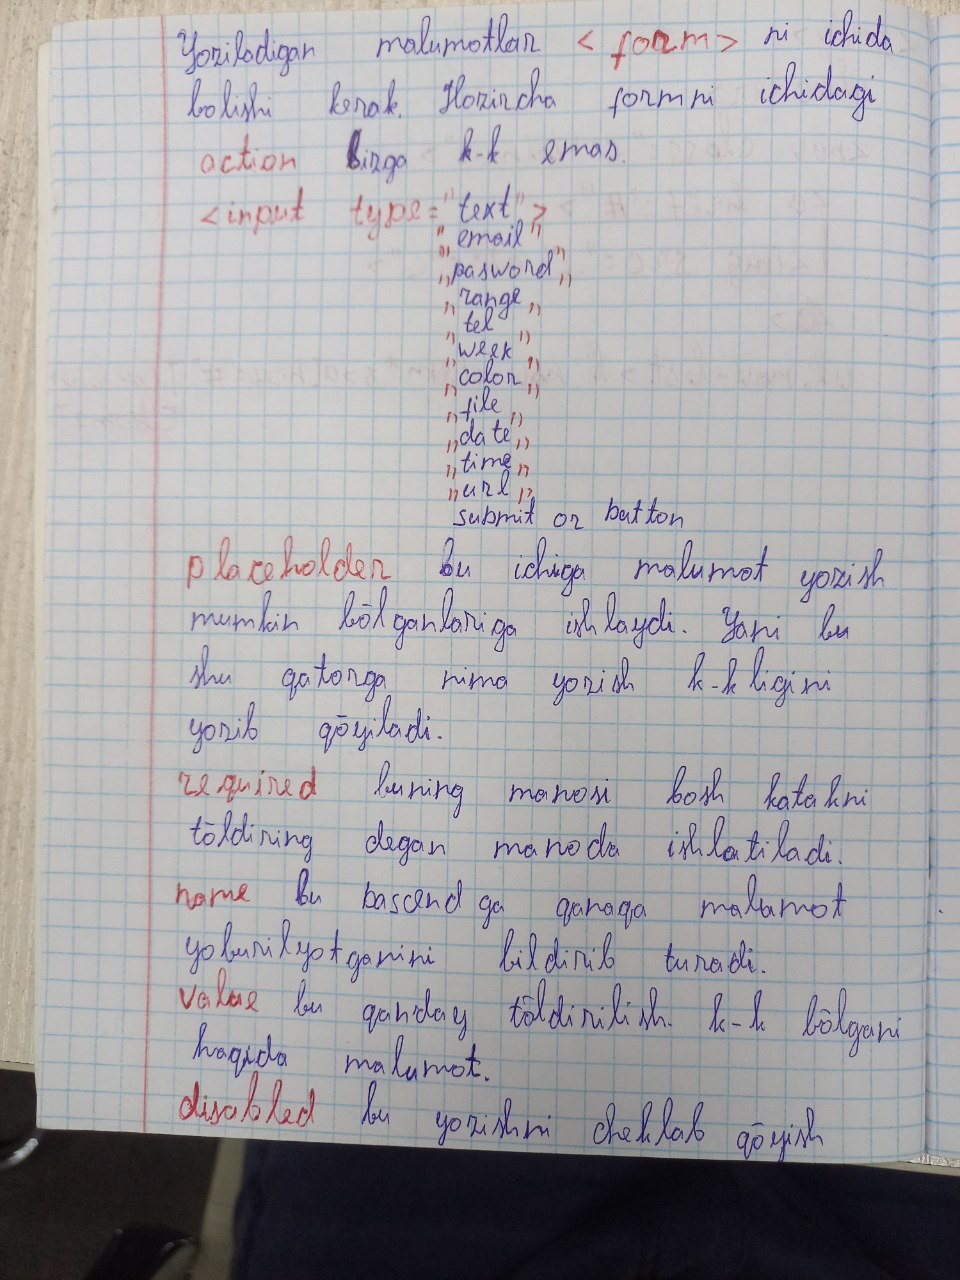 Yoziladigan malumotlar <form> ni ichida
bolishi kerak. Hozircha formni ichidagi
action bizga k-k emas.
<input type="text">
"email"
"pasword"
"range"
"tel"
"week"
"color"
"file"
"date"
"time"
"url"
submit or batton
placeholder bu ichiga malumot yozish
mumkin bōlganlariga ishlaydi. Yani bu
shu qatorga nima yozish k-kligini
yozib qōyiladi.
required buning manosi bosh katakni
tōldiring degan manoda ishlatiladi.
name bu bascend ga qanaqa malumot
yoburilyotganini bildirib turadi.
value bu qanday tōldirilish k-k bōlgani
haqida malumot.
disabled bu yozishni cheklab qōyish